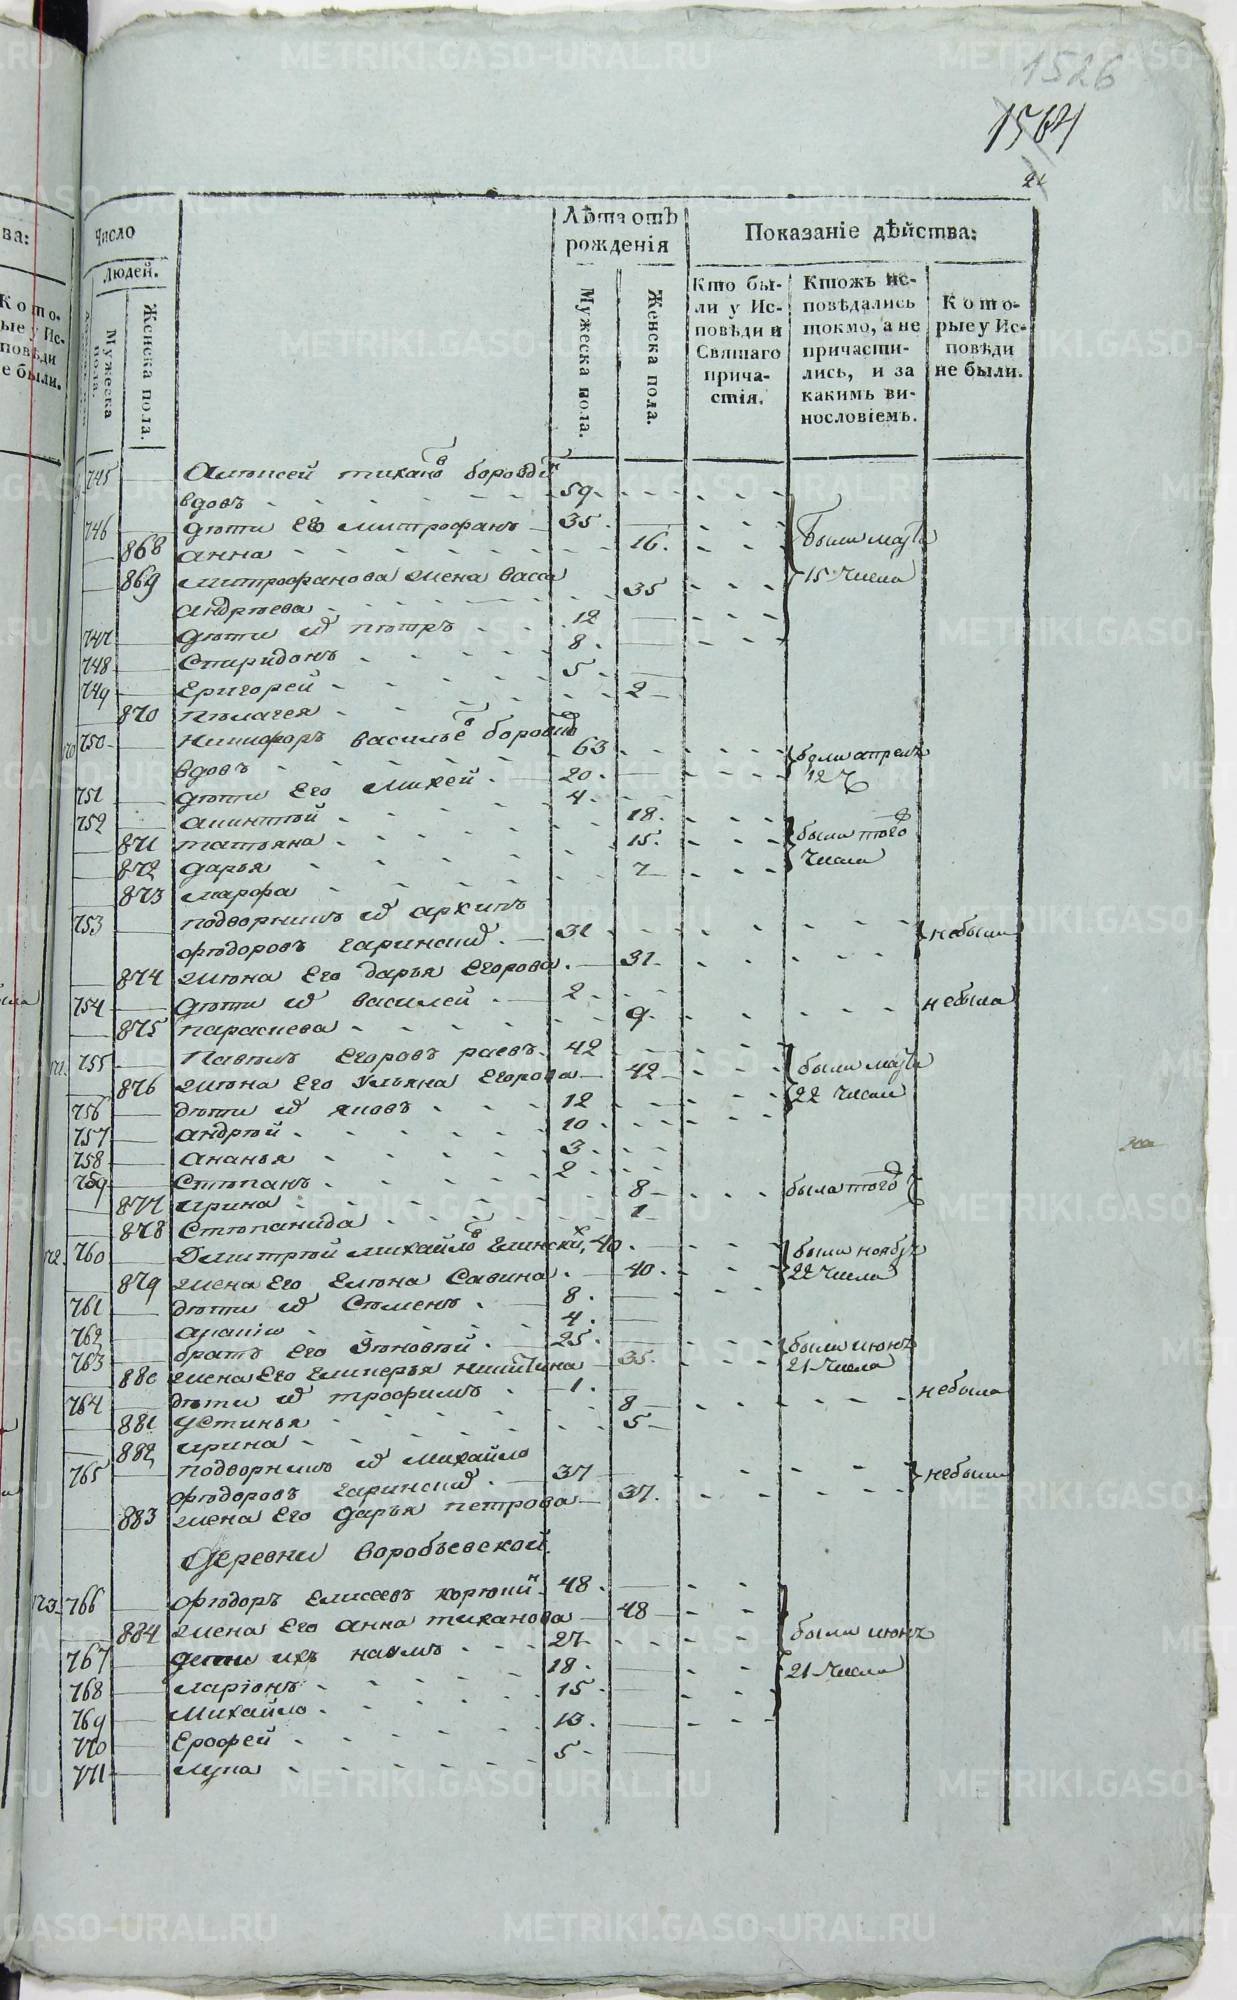 1526
1564
Число
Людей.
Мужеска пола.
Женска пола.
Лѣта отъ рожденія
Мужеска пола.
Женска пола.
Показаніе дѣйства:
Кто были у Исповѣди и Святаго причастія.
Ктожъ исповѣдались токмо, а не причастились, и за какимъ винословіемъ.
Которые у Исповѣди не были.
745 Алексей тихановъ
вдовъ 59
746 дети Его митрофанъ 35
868 анна 16 были
869 митрофанова жена васса 35 15 числа
андреева
747 дети петръ 12
748 Спиридонъ 8
749 Григорей 5
870 пелагея 2
750 никифоръ васильевъ
вдовъ 63 были апреля
751 дети Его михей 20 12
752 4
871 татьяна 18 были того
872 дарья 15 числа
873 марфа 7
753 подворникъ архипъ
федоровъ гаринский 31 небыли
874 жена Его дарья Егорова 31
754 дети василей 2 небыла
875 параскева 9
755 Павелъ Егоровъ раевъ 42 были
876 жена Его Ульяна Егорова 42 22 числа
756 дети яковъ 12
757 андрей 10
758 ананья 3
759 Степанъ 2
877 ирина 8 была того
878 Степанида 1
760 Дмитрей михайловъ Глинских 40 были ноября
879 жена Его Елена Савина 40 22 числа
761 дети Семенъ 8
762 4
763 братъ Его Зеновей 25 были июня
880 жена Его никитина 35 21 числа
764 дети трофимъ 1 небыла
881 устинья 8
882 ирина 5
765 подворникъ михайло
федоровъ гаринский 37 небыли
883 жена Его дарья петрова 37
Деревни воробьевской
766 федоръ Елисеевъ 48
884 жена Его анна тиханова 48 были июня
767 дети ихъ наумъ 27
768 ларионъ 18 21 числа
769 Михайло 15
770 Ерофей 10
771 лука 5